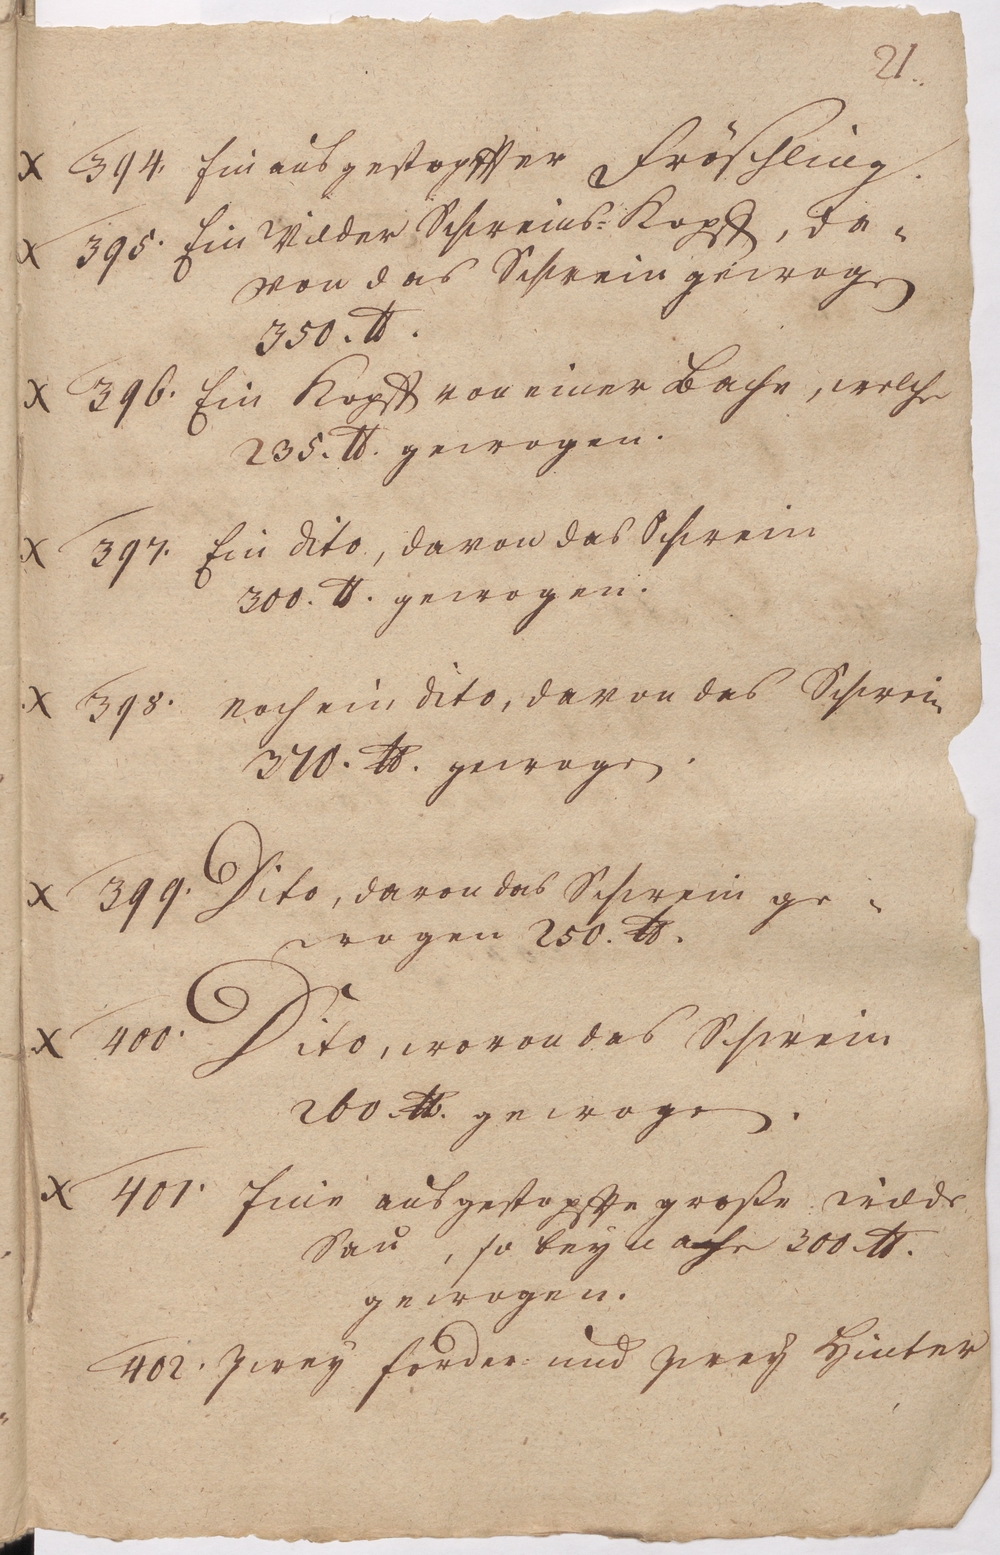 21.
x 394. Ein ausgestopffter Fröschling.
x 395. Ein Wilder Schweins-Kopff, da-
von das Schwein gewogen
350. ℔.
x 396. Ein Kopff von einer Bache, welche
235. ℔. gewogen.
x 397. Ein dito, davon das Schwein
300. ℔. gewogen.
x 398. noch ein dito, davon das Schwein
370. ℔. gewogen.
x 399. Dito, davon das Schwein ge-
wogen 250. ℔.
x 400. Dito, wovon das Schwein
260. ℔. gewogen.
x 401. Eine ausgestopffte große wilde
Sau, so beynahe 300. ℔.
gewogen.
402. Zwey forder- und zwey Hinter